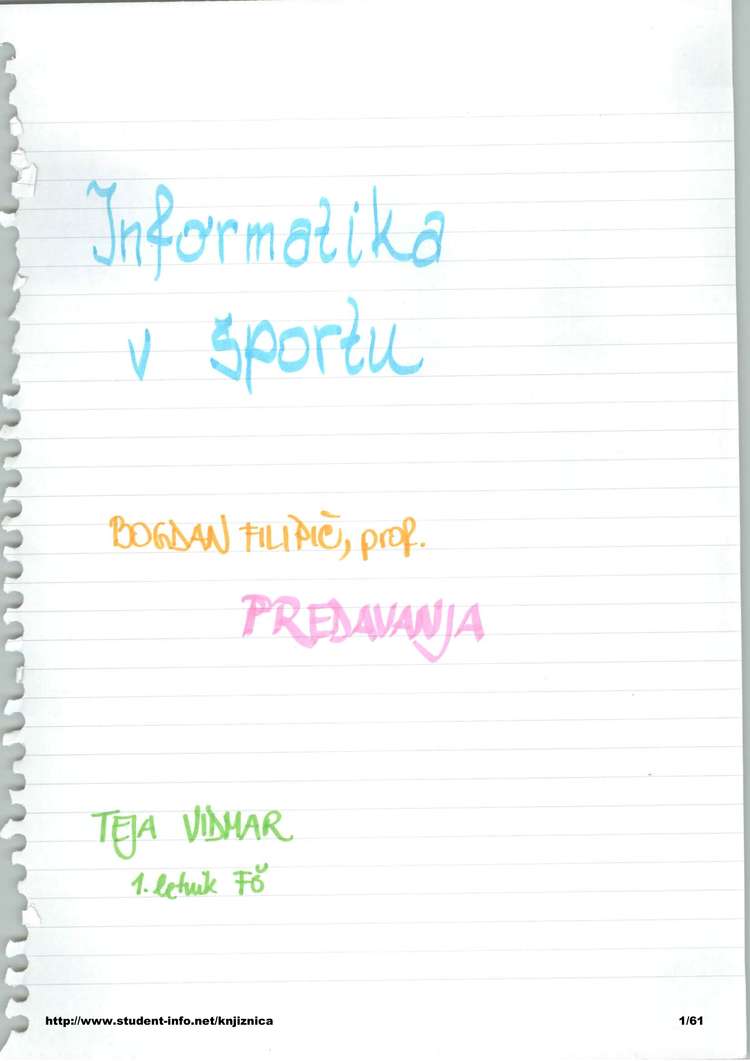 Informatika
v športu
BOGDAN FILIPIČ, prof.
PREDAVANJA
TEJA VIDMAR
1. letnik FŠ
http://www.student-info.net/knjiznica 1/61